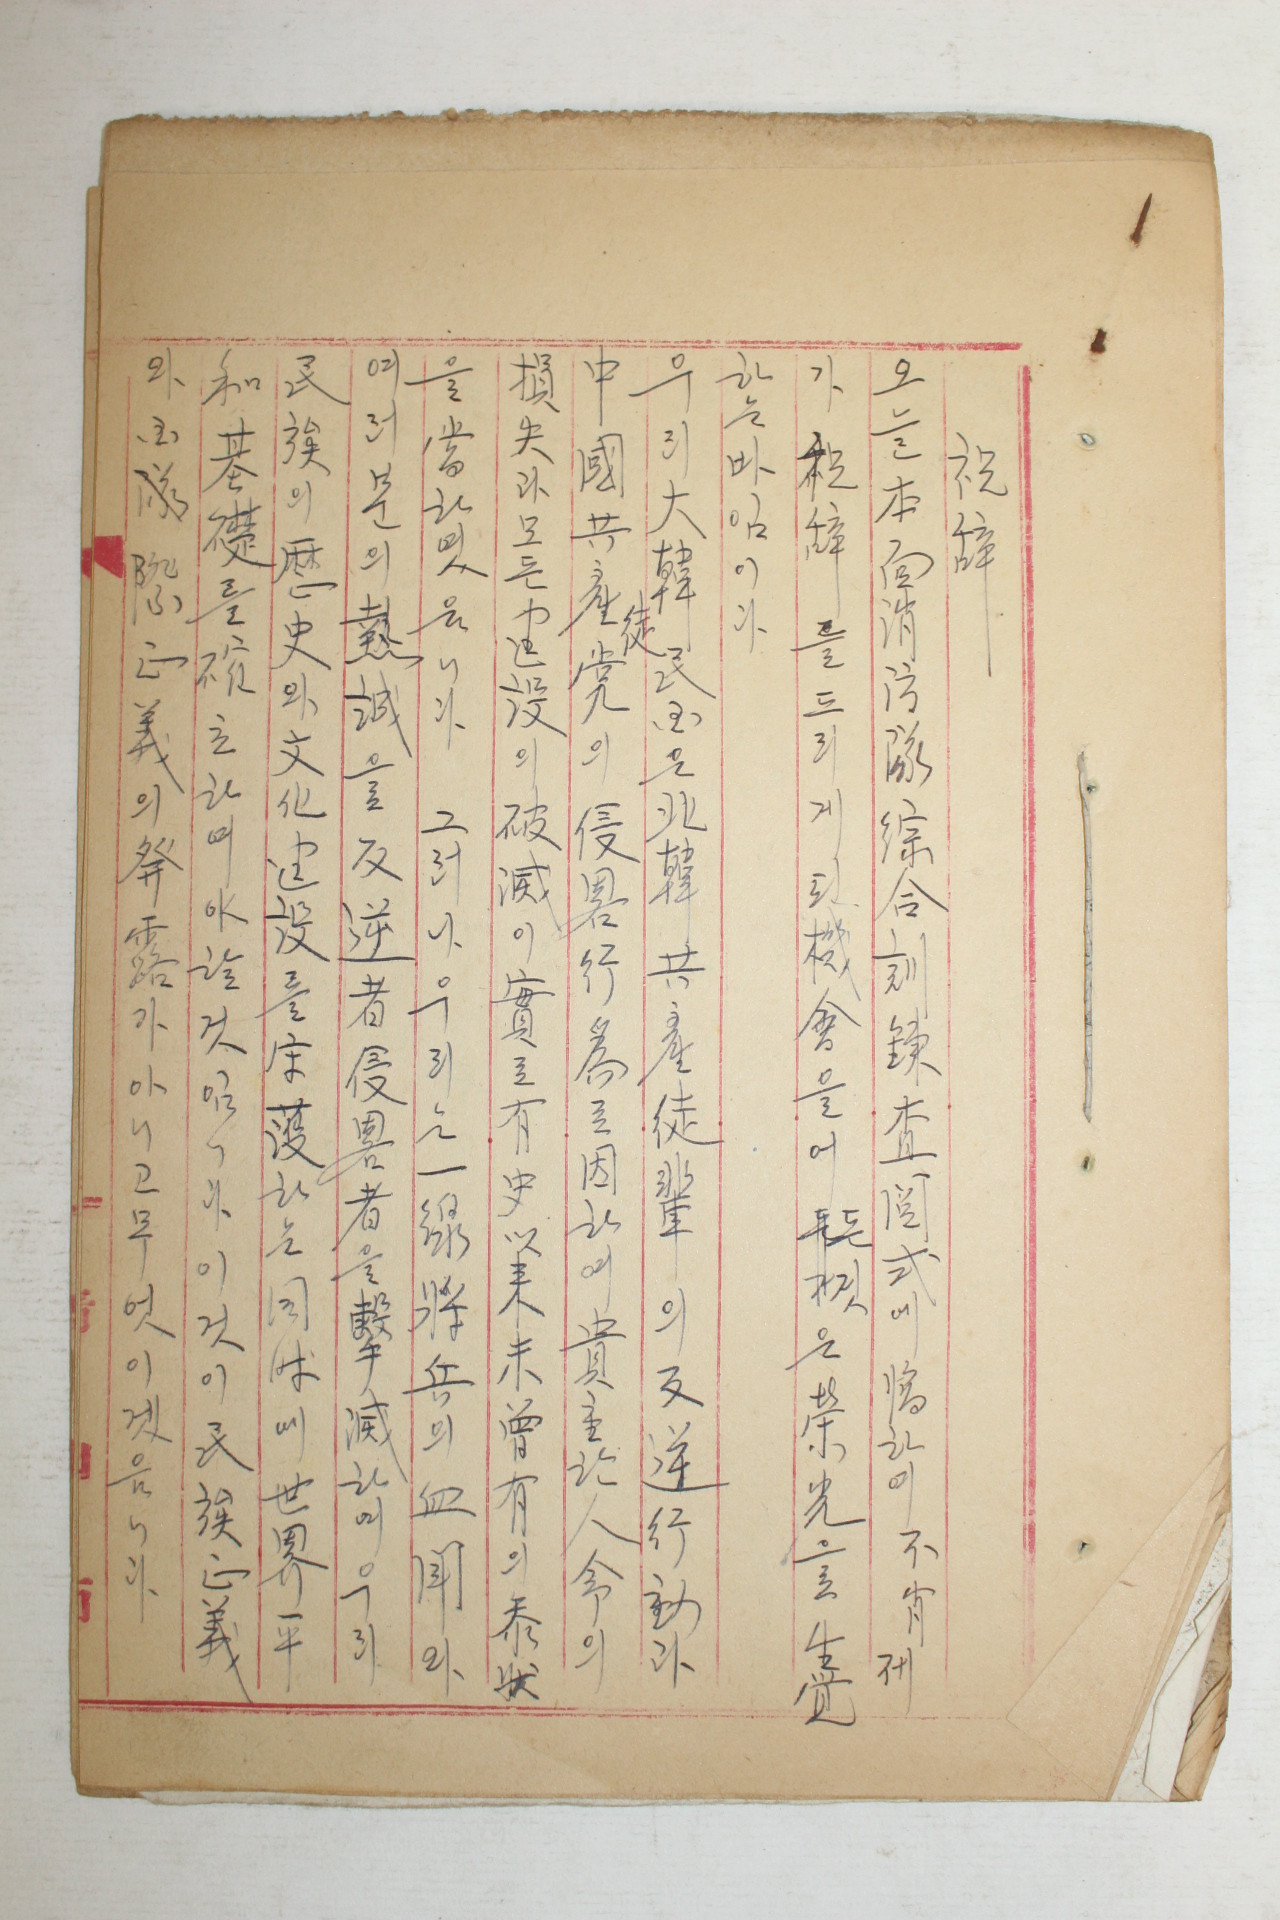 祝辭
오늘本面消防隊綜合訓鍊査閱式에臨하여不肖제
가祝辭를드리게된機會를어든것은榮光을生覺
하는바임이다
우리大韓民国은北韓共產徒輩의反逆行動과
中國共產党徒의侵畧行爲로因하여貴重한人命의
損失과모든建設의破滅이實로有史以来未曾有의泰狀
을當하였음니다 그러나우리는一線將兵의血闘와
여러분의熱誠을反逆者侵畧者을擊滅하며우리
民族의歷史와文化建設를守護하는同時에世界平
和基礎를確立하며야할것임니다이것이民族正義
와国際正義의發露가아니고무엇이겠음니다